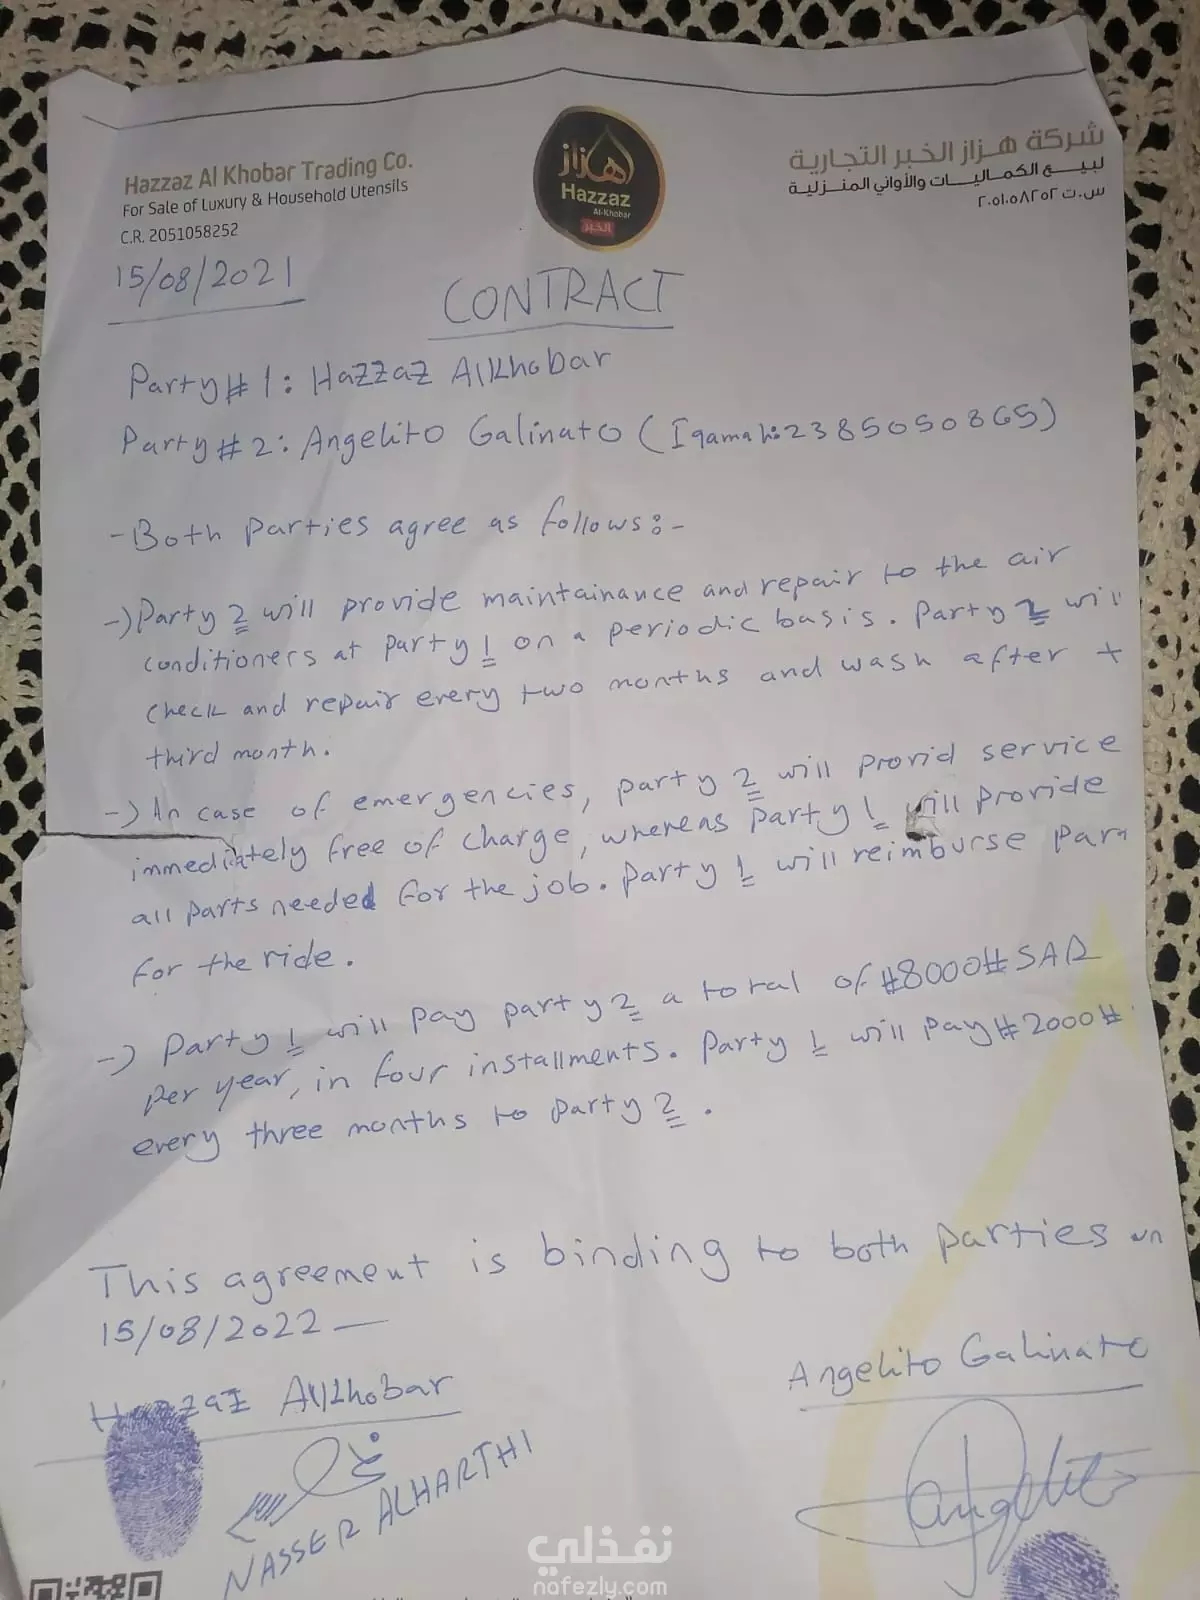 Hazzaz Al Khobar Trading Co.
For Sale of Luxury & Household Utensils
C.R. 2051058252
هزاز
Hazzaz
Al-Khobar
الخبر
شركة هزاز الخبر التجارية
لبيع الكماليات والأواني المنزلية
س.ت ٢٠٥١٠٥٨٢٥٢
15/08/2021
CONTRACT
Party # 1: Hazzaz Alkhobar
Party # 2: Angelito Galinato (Iqamah: 2385050865)
- Both parties agree as follows:-
-) Party 2 will provide maintainance and repair to the air
conditioners at party 1 on a periodic basis. Party 2 wil
check and repair every two months and wash after t
third month.
-) In case of emergencies, party 2 will provid service
immediately free of charge, whereas party 1 will provide
all parts needed for the job. Party 1 will reimburse par
for the ride.
-) Party 1 will pay party 2 a total of #8000# SAR
per year, in four installments. Party 1 will pay #2000#
every three months to party 2.
This agreement is binding to both parties un
15/08/2022 —
Hazzaz Alkhobar
Angelito Galinato
NASSER ALHARTHI
Angelito
نفذلي
nafezly.com